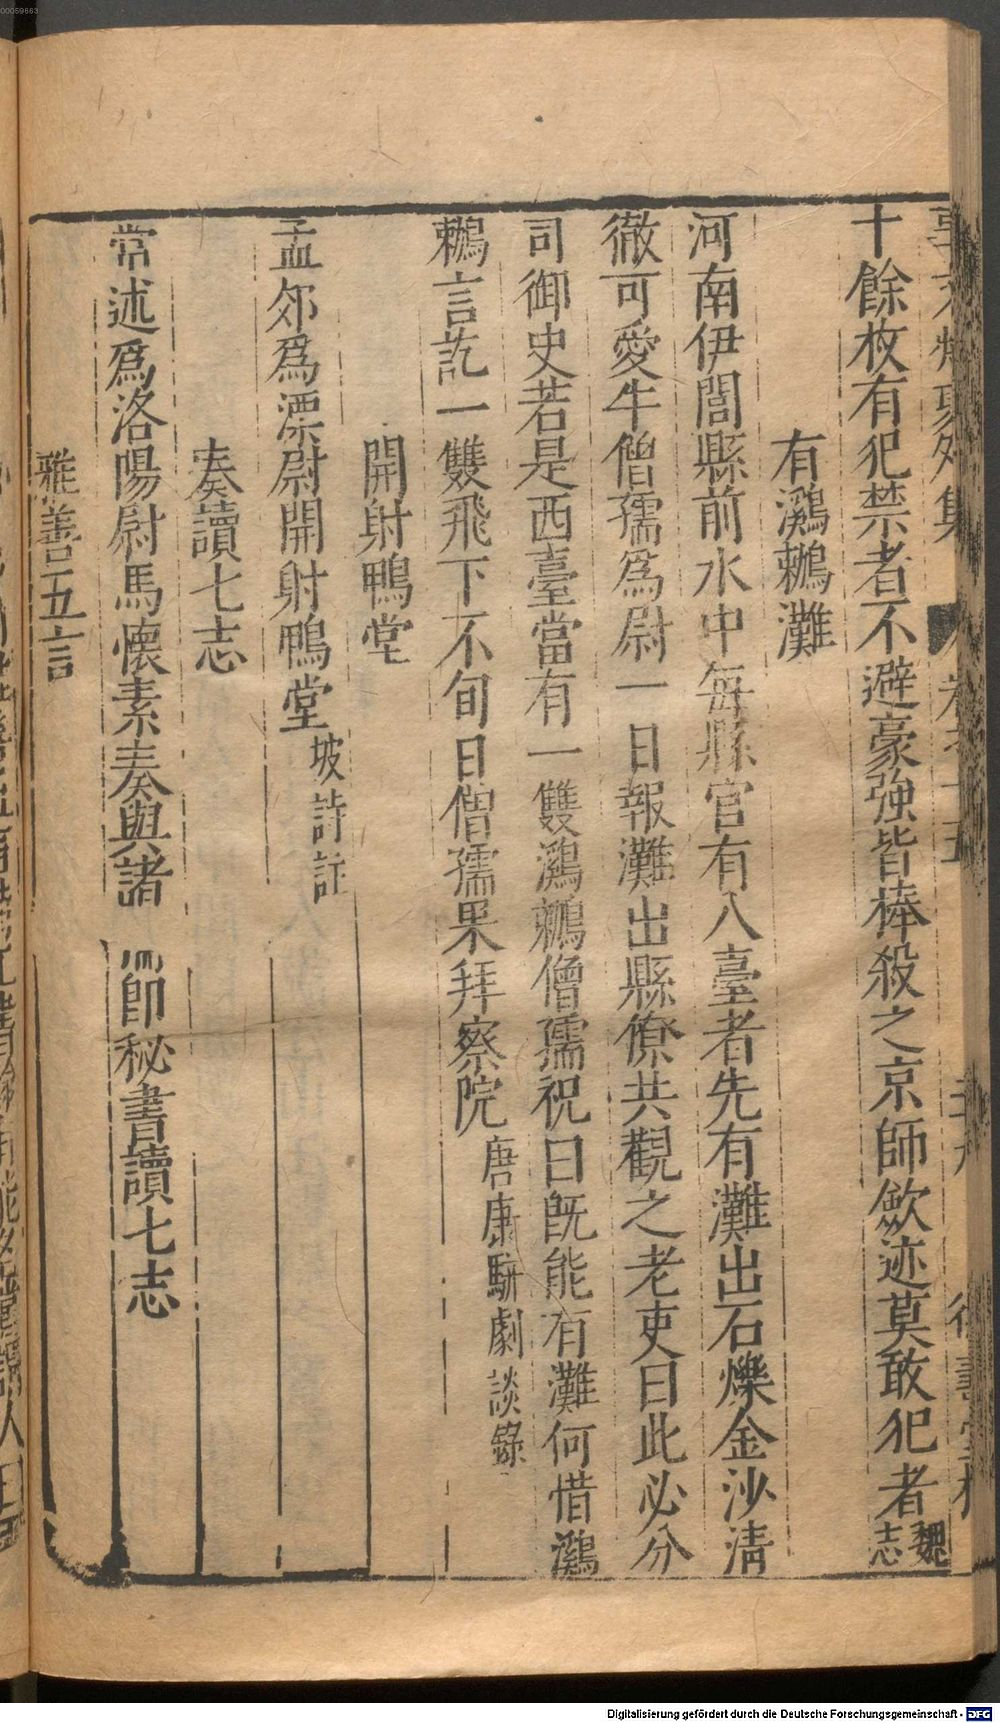 00059663
十餘枚有犯禁者不避豪強皆棒殺之京師歛迹莫敢犯者魏志
有鸂鶒灘
河南伊闊縣前水中每縣官有入臺者先有灘出石爍金沙清
徹可愛牛僧孺爲尉一日報灘出縣僚共觀之老吏曰此必分
司御史若是西臺當有一雙鸂鶒僧孺祝曰旣能有灘何惜鸂
鶒言訖一雙飛下不旬日僧孺果拜察院唐康駢劇談錄
開射鴨堂
孟郊爲溧尉開射鴨堂坡詩註
奏讀七志
常述爲洛陽尉馬懷素奏與諸 即秘書讀七志
雅善五言
Digitalisierung gefördert durch die Deutsche Forschungsgemeinschaft - DFG